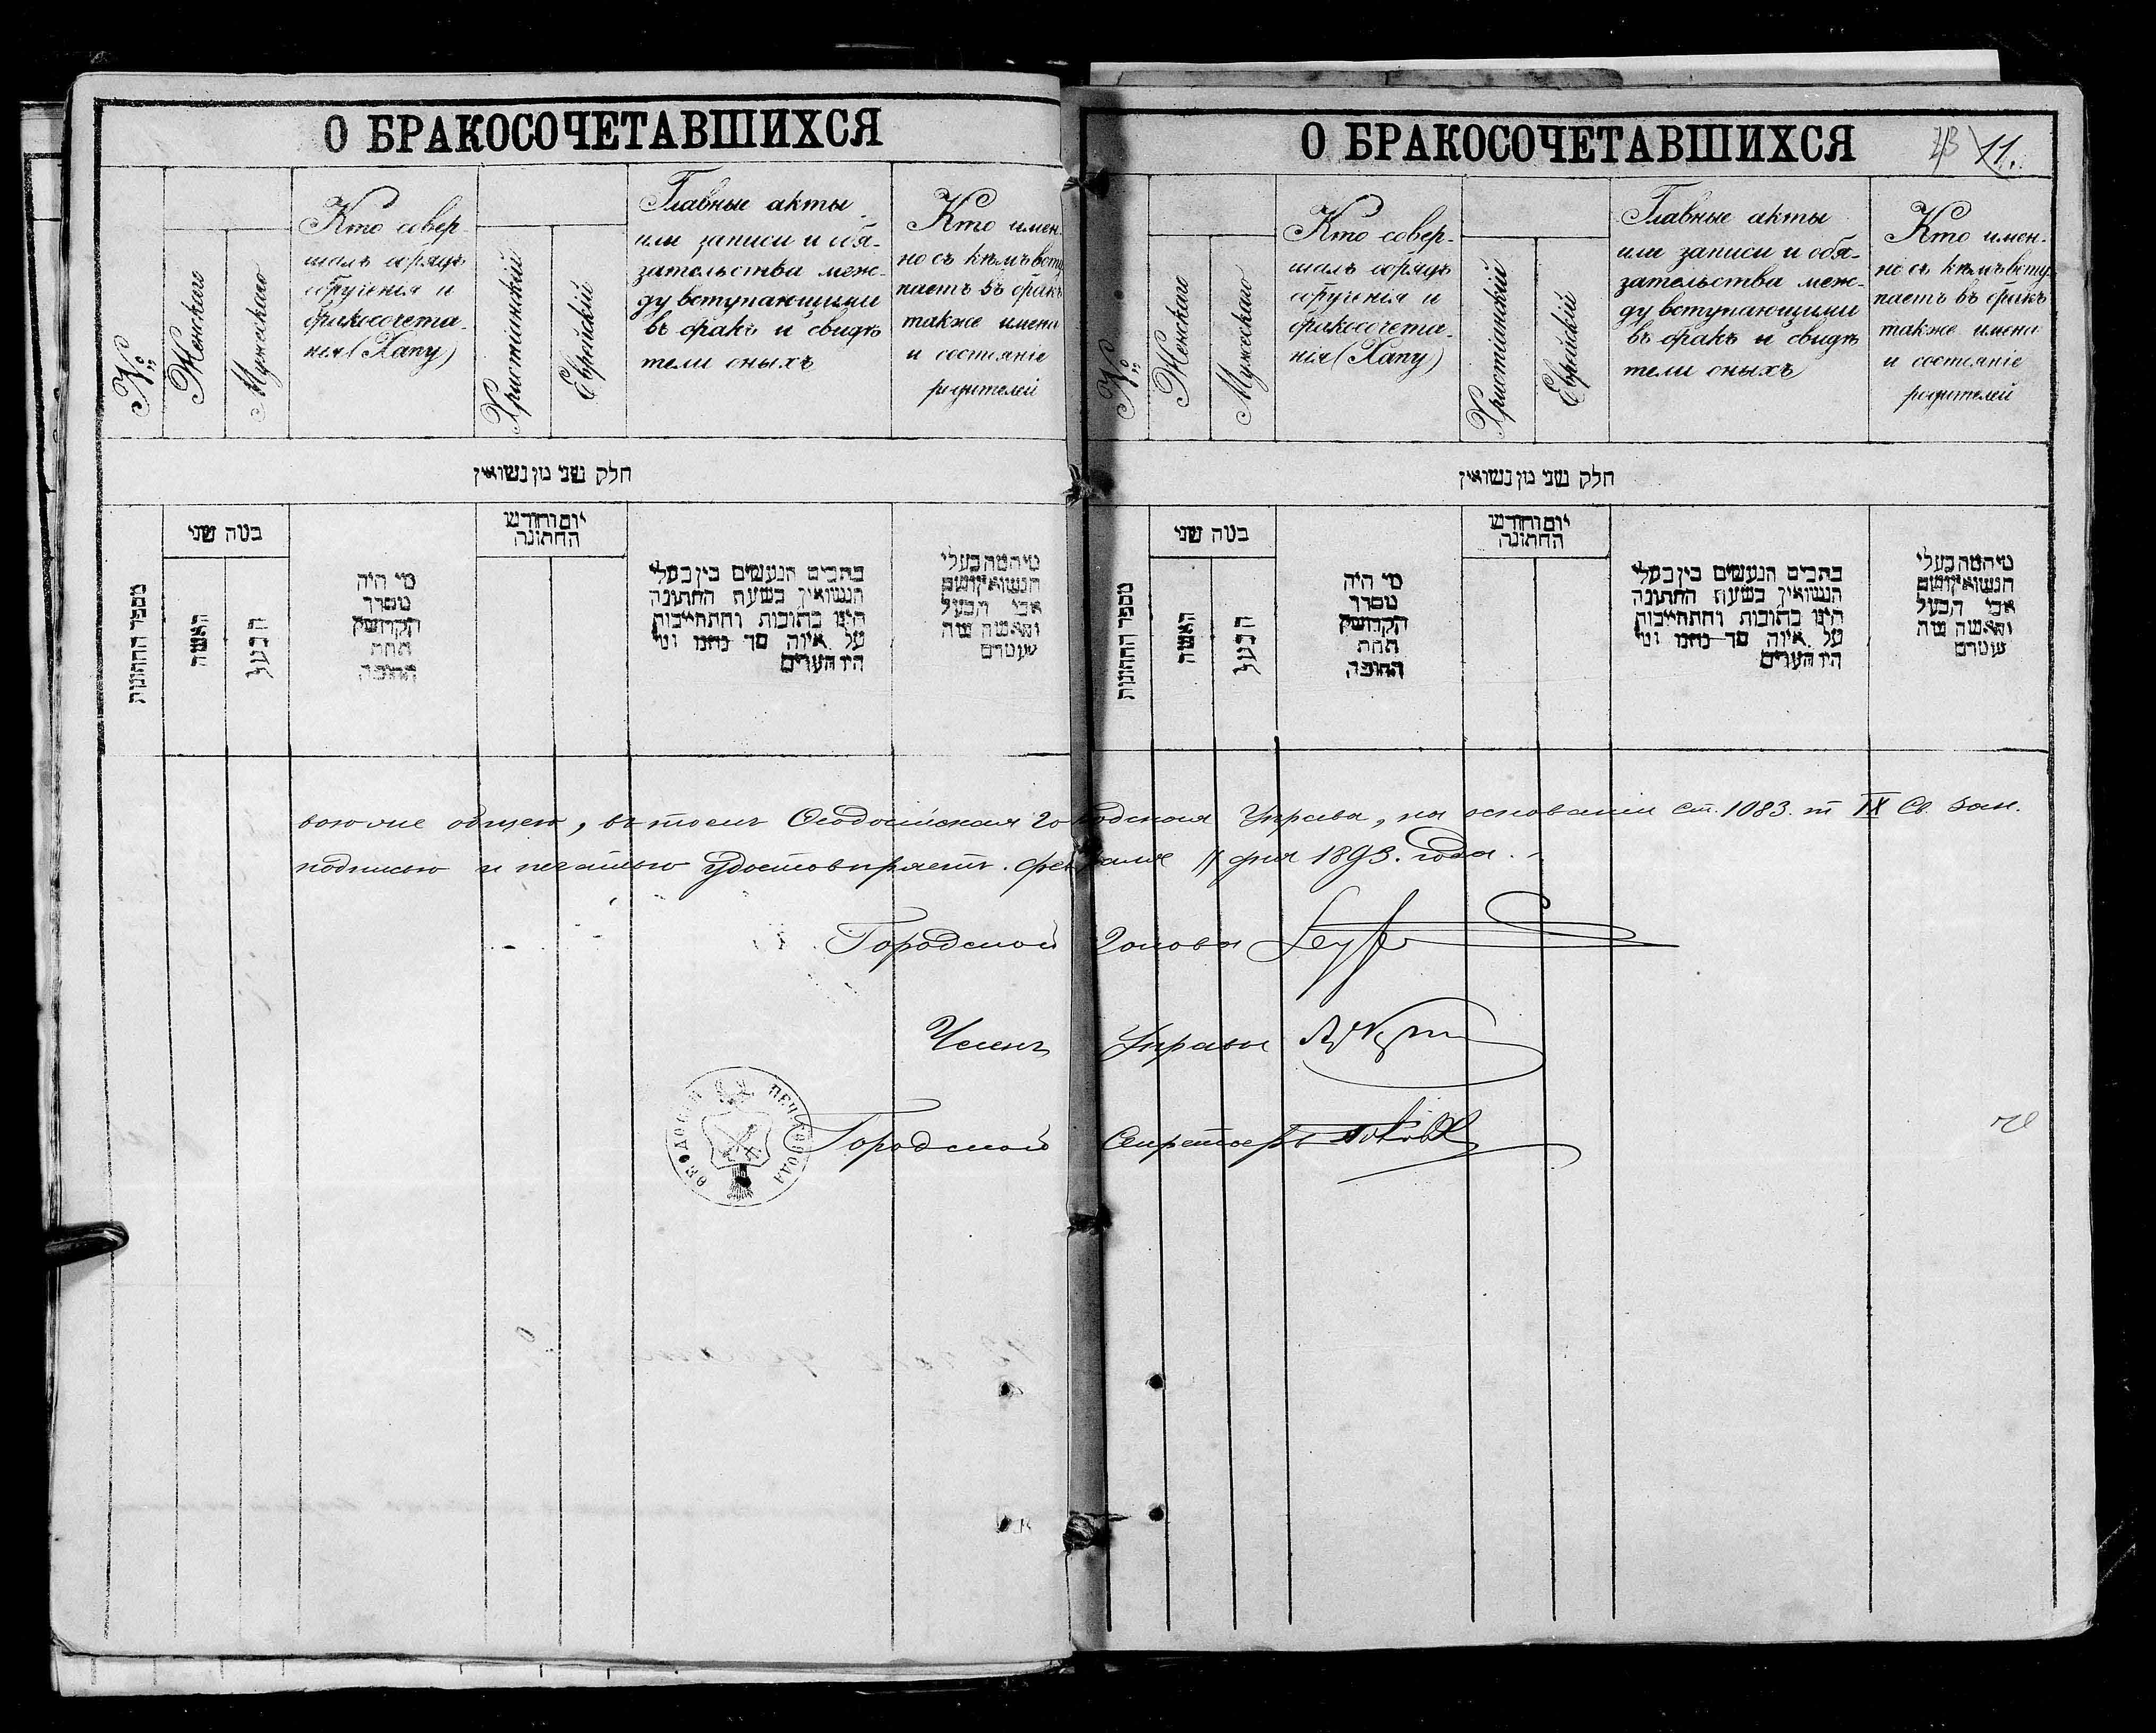 О БРАКОСОЧЕТАВШИХСЯ
№
Женскаго
Мужескаго
Кто совер-
шалъ обрядъ
обрученія и
бракосочета-
нія (Хапу)
Христіанскій
Еврейскій
Главные акты
или записи и обя-
зательства меж-
ду вступающими
въ бракъ и свидѣ
тели оныхъ
Кто имен-
но съ кѣмъ всту
паетъ въ бракъ
также имена
и состояніе
родителей
חלק שני מן נשואין
מספר החתונות
כמה שני
האשה
הבעל
מי היה
מסדר
הקדושין
תחת
החופה
יום וחודש
החתונה
כתבים הנעשים בין בעלי
הנשואין בשעת החתונה
היינו כתובות והתחייבות
על איזה סך נתנו ומי
היו העדים
מי המה בעלי
הנשואין ושם
אבי הבעל
והאשה מה
שטרם
О БРАКОСОЧЕТАВШИХСЯ
13 11.
№
Женскаго
Мужескаго
Кто совер-
шалъ обрядъ
обрученія и
бракосочета-
нія (Хапу)
Христіанскій
Еврейскій
Главные акты
или записи и обя-
зательства меж-
ду вступающими
въ бракъ и свидѣ
тели оныхъ
Кто имен-
но съ кѣмъ всту
паетъ въ бракъ
также имена
и состояніе
родителей
חלק שני מן נשואין
מספר החתונות
כמה שני
האשה
הבעל
מי היה
מסדר
הקדושין
תחת
החופה
יום וחודש
החתונה
כתבים הנעשים בין בעלי
הנשואין בשעת החתונה
היינו כתובות והתחייבות
על איזה סך נתנו ומי
היו העדים
מי המה בעלי
הנשואין ושם
אבי הבעל
והאשה מה
שטרם
въ томъ Ѳеодосійская Городская Управа, на основаніи ст. 1083. т IX Св. зак.
подписью и печатью удостовѣряетъ. Февраля 11 дня 1893. года.
Городской Голова
Членъ Управы
Городской Секретарь
ПЕЧ ГОРОДА ѲЕОДОСІИ